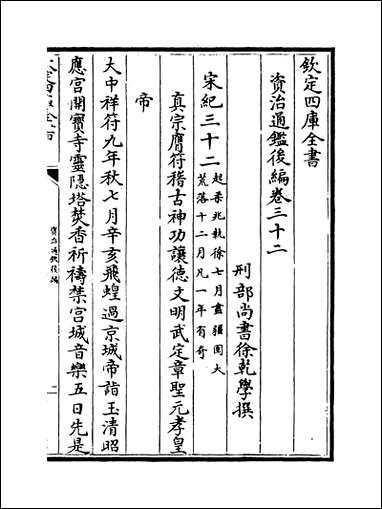 欽定四庫全書
資治通鑑後編卷三十二
刑部尚書徐乾學撰
宋紀三十二起柔兆執徐七月盡彊圉大荒落十二月凡一年有奇
真宗膺符稽古神功讓德文明武定章聖元孝皇
帝
大中祥符九年秋七月辛亥飛蝗過京城帝詣玉清昭
應宮開寶寺靈隱塔焚香祈禱禁宮城音樂五日先是
資治通鑑後編